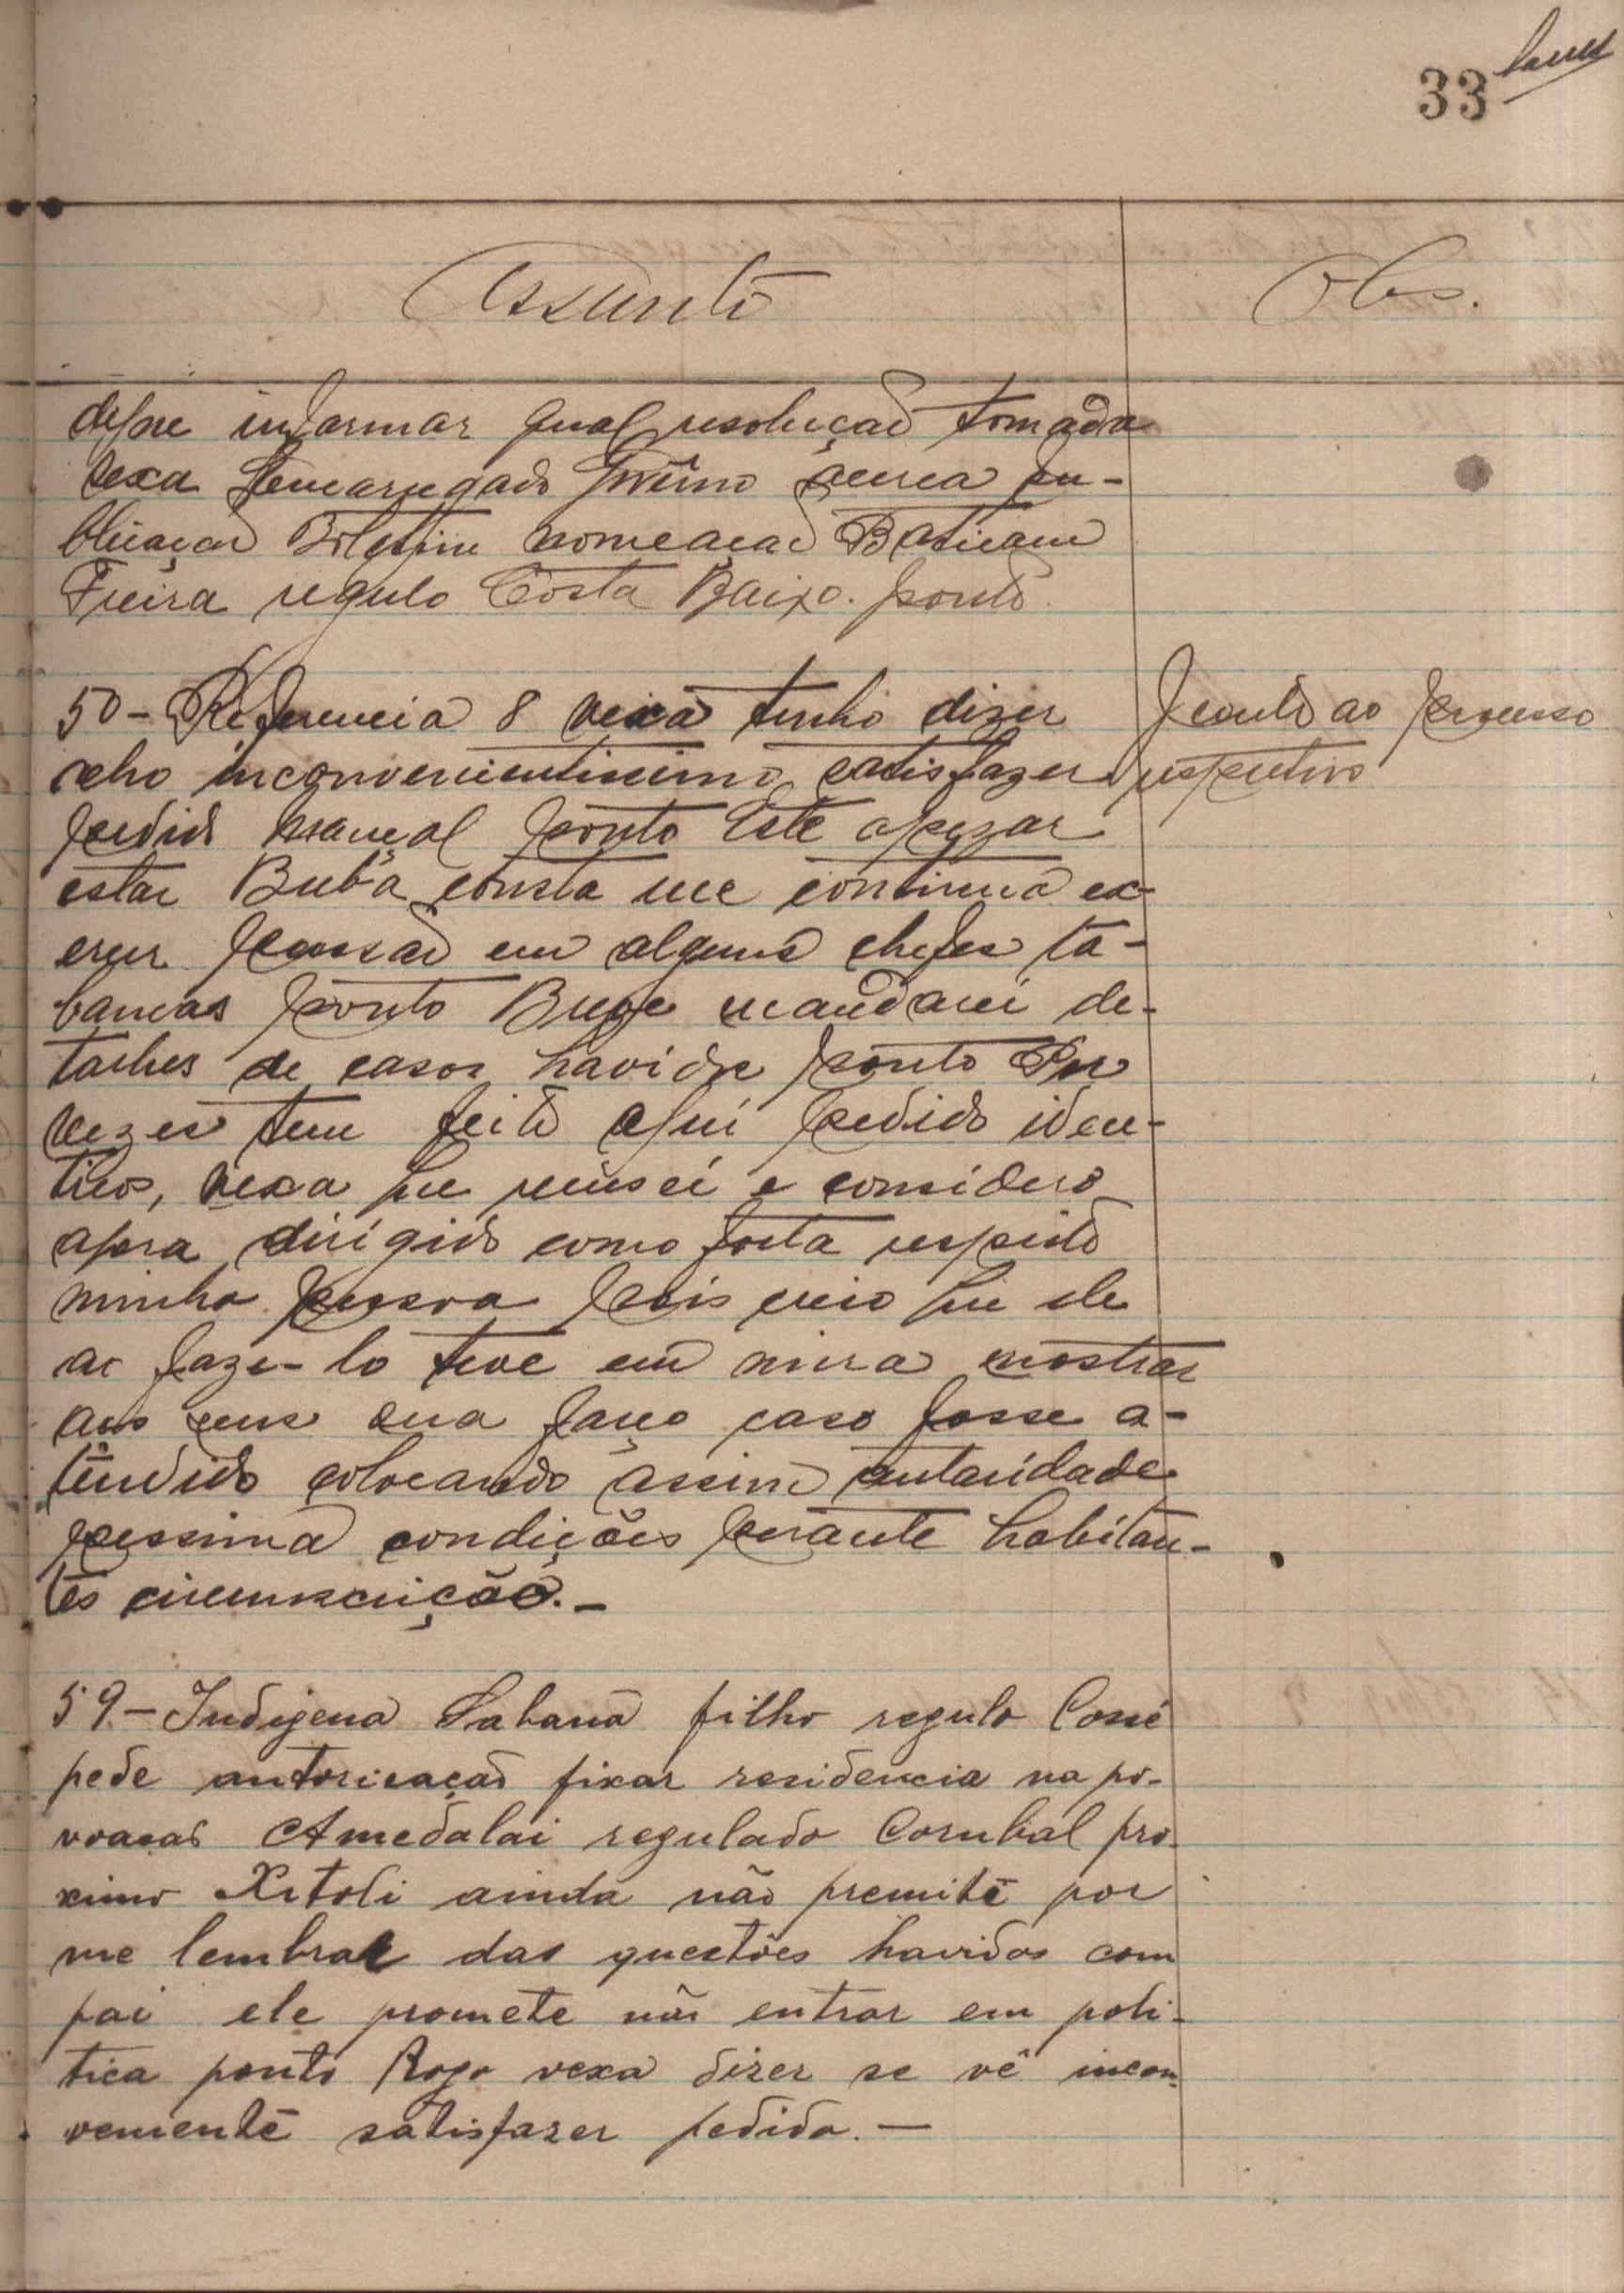 33
Assunto
Obs.
informar qual resolução tomada
vexa Encarregado Govêrno acerca pu-
blicaçao Boletim nomeaçao Baticam
Freira regulo Cósta Baixo. ponto
50 - Referencia 8 vexa tenho dizer
acho inconvenientissimo satisfazer
pedido ponto Este apezar
estar Buba consta me continua ex-
ercer pressao em alguns chefes ta-
bancas ponto Breve mandarei de-
talhes de casos havidos ponto Por
vezes tem feito aqui pedido iden-
ticos, vexa que recusei e considero
agora dirigido como falta respeito
minha pessoa pois creio que ele
ao faze-lo teve em mira mostrar
aos seus sua força caso fosse a-
tendido colocando assim autoridade
pessima condições perante habitan-
tes circunscrição. -
Junto ao processo
respectivo
59 - Indigena Sabana filho regulo Cossé
pede autorisaçao fixar residencia na po-
voaçao Amedalai regulado Corubal pro-
ximo Xitoli ainda não premite por
me lembrar das questões havidas com
pai ele promete não entrar em poli-
tica ponto Rogo vexa dizer se vê incon-
veniente satisfazer pedido. -